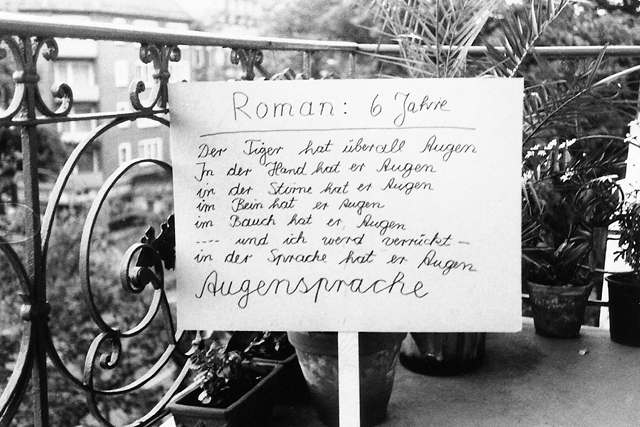 Roman: 6 Jahre
Der Tiger hat überall Augen
In der Hand hat er Augen
in der Stirne hat er Augen
im Bein hat er Augen
im Bauch hat er Augen
---- und ich werd verrückt –
in der Sprache hat er Augen
Augensprache